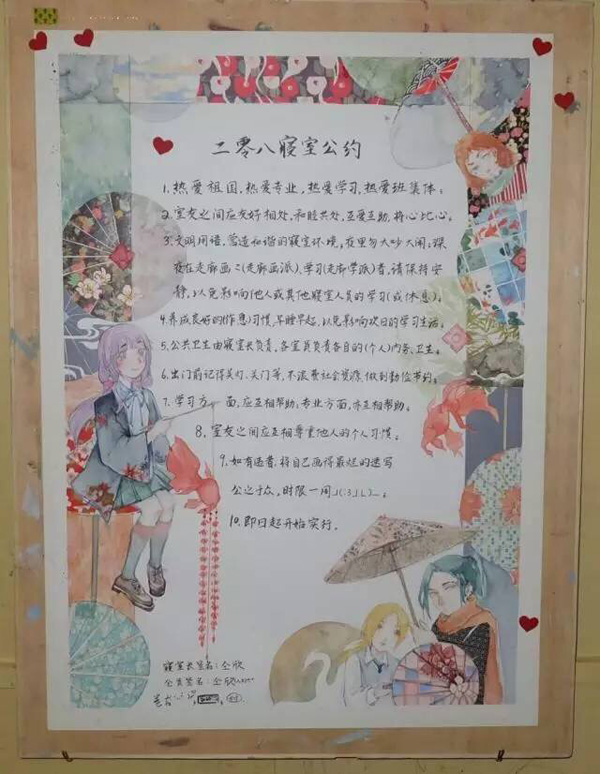 二零八寝室公约
1.热爱祖国,热爱专业,热爱学习,热爱班集体;
2.室友之间应友好相处,和睦共处,互爱互助,将心比心。
3.文明用语,营造和谐的寝室环境,夜里勿大吵大闹;深
夜在走廊画こ(走廊画派)、学习(走廊学派)者,请保持安
静,以免影响他人或其他寝室人员的学习(或休息);
4.养成良好的作息习惯,早睡早起,以免影响次日的学习生活;
5.公共卫生由寝室长负责,各室员负责各自的(个人)内务、卫生。
6.出门前记得关灯、关门等,不浪费社会资源,做到勤俭节约;
7.学习方面,应互相帮助;专业方面,亦互相帮助。
8.室友之间应互相尊重他人的个人习惯。
9.如有违者:将自己画得最烂的速写
公之于众,时限一周」(:3」L)_。
10.即日起开始实行。
寝室长签名:仝欣
全员签名:仝欣